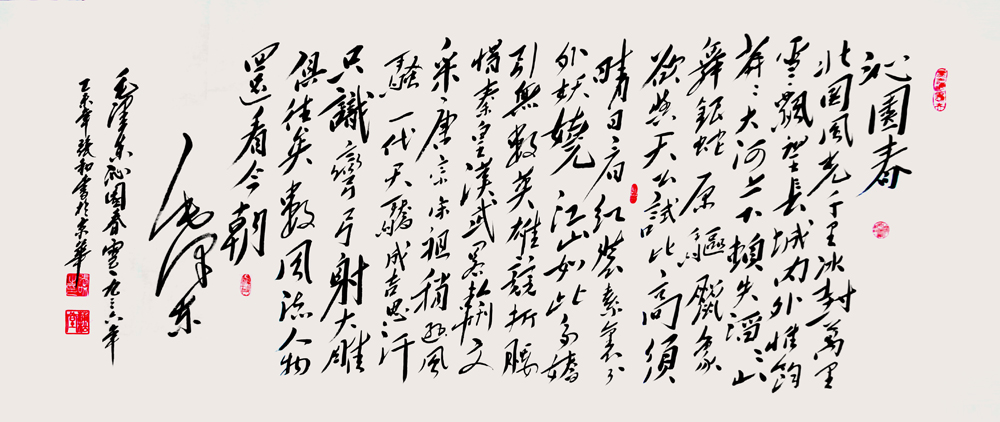 沁園春
北国風光千里冰封萬里
雪飄望長城内外惟餘
莽〻大河上下頓失滔〻山
舞銀蛇原驅臘象
欲與天公試比高須
晴日看紅裝素裹分
外妖嬈江山如此多嬌
引無數英雄競折腰
惜秦皇漢武畧輸文
采唐宗宋祖稍遜風
騷一代天驕成吉思汗
只識彎弓射大雕
俱往矣數風流人物
還看今朝
毛澤東
毛澤東沁園春雪一九三六年
乙未年張和書於京華